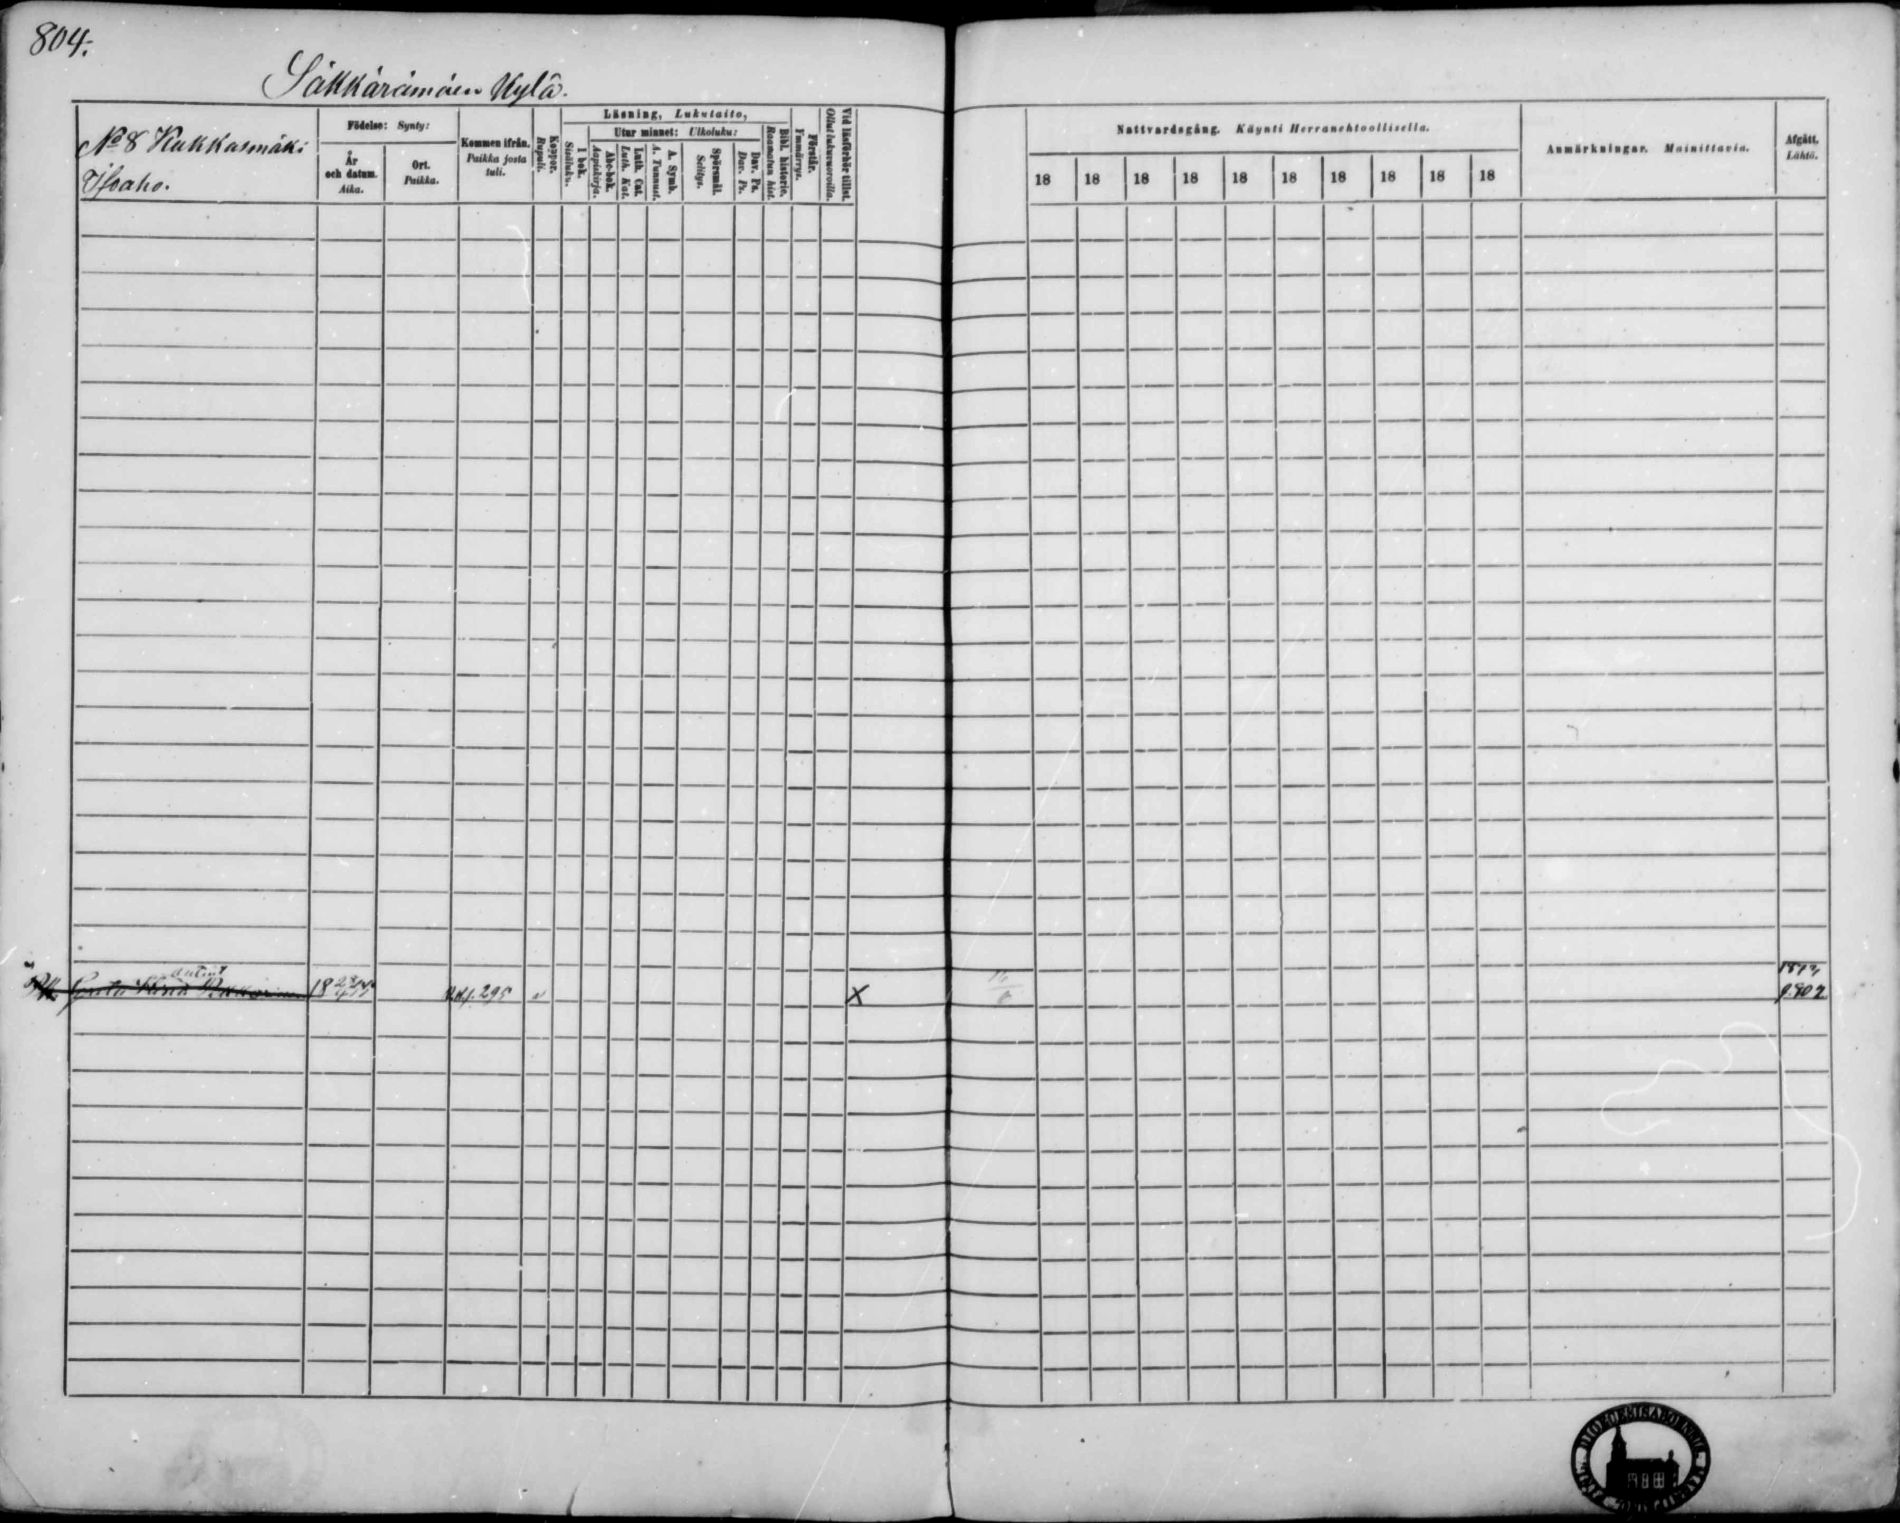 804.
Säkkärämäen Kylä.
No 8 Kukkasmäki
Isoaho.
Födelse: Synty:
År och datum. Aika.
Ort. Paikka.
Kommen ifrån. Paikka josta tuli.
Koppor. Rupuli.
Läsning, Lukutaito,
I bok. Sisäluku.
Utur minnet: Ulkoluku:
Abc-bok. Aapiskirja.
Luth. Cat. Luth. Kat.
A. Symb. A. Tunnust.
Spörsmål. Selitys.
Dav. Ps. Dav. Ps.
Bibl. historie. Raamatun hist.
Förstår. Ymmärrys.
Vid läsförhör tillst. Ollut lukuvuoroilla.
Nattvardsgång. Käynti Herranehtoollisella.
18 18 18 18 18 18 18 18 18 18
Anmärkningar. Mainittavia.
Afgått. Lähtö.
295
X